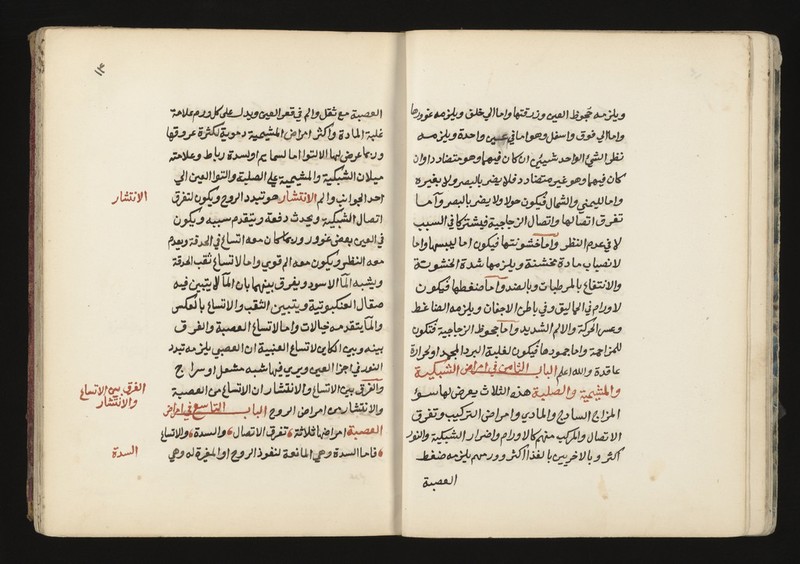 ويلزمه جحوظ العين وزرقتها واما الي خلف ويلزمه غورها
واما الي فوق واسفل وهو اما في عين واحدة ويلزمه
نظر الشي الواحد شيئين ان كان فيهما وهو متضاد او ان
كان فيهما وهو غير متضادد فلا يضر بالبصر ولا بغيره
واما لليمني والشمال فيكون حولا ولا يضر بالبصر واما
تفرق اتصالها واتصال الزجاجية فيشتركا في السبب
لا في عدم النظر واما خشونتها فيكون اما ليبسها واما
لانصباب مادة مخشنة ويلزمها شدة الخشونة
والانتفاع بالمرطبات وبالضد واما ضغطها فيكون
لاورام في الماليق وفي باطن الاجفان ويلزمه الضاغط
وعسر الحركة والالم الشديد واما جحوظ الزجاجية فتكون
للمزاحمة واما جمودها فيكون لغلبة البرد المجمد او لحرارة
عاقدة والله اعلم الباب الثامن في امراض الشبكية
والمشيمية والصلبة هذه الثلاث يعرض لها سوء
المزاج الساذج والمادي وامراض التركيب وتفرق
الاتصال والمركب منهم كالاورام واضرار الشبكية والنور
اكثر وبالاخريين بالغذا اكثر وورمهم يلزمه ضغط
العصبة
١٣
العصبة مع ثقل والم في قعر العين ويدل علي كل ورم علامة
غلبة المادة واكثر امراض المشيمية دموية لكثرة عروقها
وربما عرض لها الالتوا اما لسمايم او لسدة رباط وعلامته
ميلان الشبكية والمشيمية علي الصلبة والتوا العين الي
احد الجوانب والم الانتشار هو تبدد الروح ويكون لتفرق
اتصال الشبكية ويحدث دفعة ويتقدم سببه ويكون
في العين بعض غوور وربما كان معه اتساع في الحدقة ويعدم
معه النظر ويكون معه الم قوي واما لاتساع ثقب الحدقة
ويشبه الماء الاسود ويفرق بينهما بان الماء لا يتبين فيه
صقال العنكبوتية ويتبين الثقب والاتساع بالعكس
والماء يتقدمه خيالات واما لاتساع العصبة والفرق
بينه وبين الكاين لاتساع العنبية ان العصبي يلزمه تبدد
النور في اجزا العين ويري فيها شبه مشعل او سراج
والفرق بين الاتساع والانتشار ان الاتساع من العصبة
والانتشار من امراض الروح الباب التاسع في امراض
العصبة امراضها ثلاثة تفرق الاتصال والسدة والاتساع
فاما السدة وهي المانعة لنفوذ الروح او المغيرة له وهي
الانتشار
الفرق بين الاتساع
والانتشار
السدة